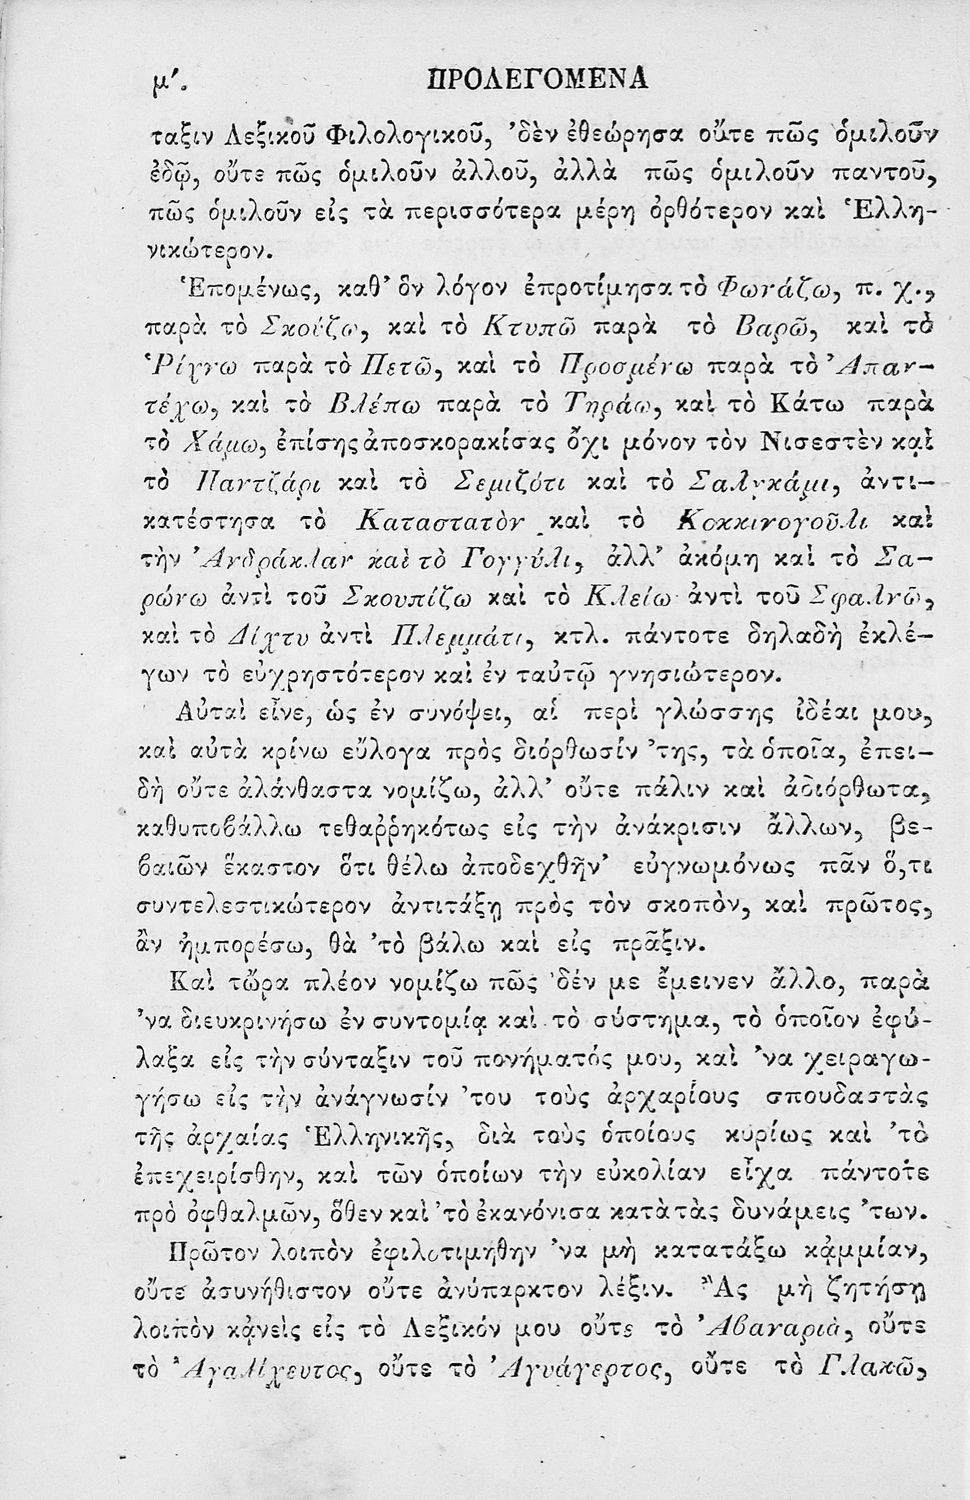 μʹ. ΠΡΟΛΕΓΟΜΕΝΑ
ταξιν Λεξικοῦ Φιλολογικοῦ, ’δὲν ἐθεώρησα οὔτε πῶς ὁμιλοῦν
ἐδῷ, οὔτε πῶς ὁμιλοῦν ἀλλοῦ, ἀλλὰ πῶς ὁμιλοῦν παντοῦ,
πῶς ὁμιλοῦν εἰς τὰ περισσότερα μέρη ὀρθότερον καὶ Ἑλλη-
νικώτερον.
Ἑπομένως, καθ’ ὃν λόγον ἐπροτίμησα τὸ Φωνάζω, π. χ.,
παρὰ τὸ Σκούζω, καὶ τὸ Κτυπῶ παρὰ τὸ Βαρῶ, καὶ τὸ
Ῥίχνω παρὰ τὸ Πετῶ, καὶ τὸ Προσμένω παρὰ τὸ Ἀπαν-
τέχω, καὶ τὸ Βλέπω παρὰ τὸ Τηράω, καὶ τὸ Κάτω παρὰ
τὸ Χάμω, ἐπίσης ἀποσκορακίσας ὄχι μόνον τὸν Νισεστὲν καὶ
τὸ Παντζάρι καὶ τὸ Σεμιζότι καὶ τὸ Σαλγκάμι, ἀντι-
κατέστησα τὸ Καταστατὸν καὶ τὸ Κοκκινογοῦλι καὶ
τὴν Ἀνδράκλαν καὶ τὸ Γογγύλι, ἀλλ’ ἀκόμη καὶ τὸ Σα-
ρώνω ἀντὶ τοῦ Σκουπίζω καὶ τὸ Κλείω ἀντὶ τοῦ Σφαλνῶ,
καὶ τὸ Δίχτυ ἀντὶ Πλεμμάτι, κτλ. πάντοτε δηλαδὴ ἐκλέ-
γων τὸ εὐχρηστότερον καὶ ἐν ταὐτῷ γνησιώτερον.
Αὐταὶ εἶνε, ὡς ἐν συνόψει, αἱ περὶ γλώσσης ἰδέαι μου,
καὶ αὐτὰ κρίνω εὔλογα πρὸς διόρθωσίν ’της, τὰ ὁποῖα, ἐπει-
δὴ οὔτε ἀλάνθαστα νομίζω, ἀλλ’ οὔτε πάλιν καὶ ἀδιόρθωτα,
καθυποβάλλω τεθαῤῥηκότως εἰς τὴν ἀνάκρισιν ἄλλων, βε-
βαιῶν ἕκαστον ὅτι θέλω ἀποδεχθῆν’ εὐγνωμόνως πᾶν ὅ,τι
συντελεστικώτερον ἀντιτάξῃ πρὸς τὸν σκοπὸν, καὶ πρῶτος,
ἂν ἠμπορέσω, θὰ ’τὸ βάλω καὶ εἰς πρᾶξιν.
Καὶ τῶρα πλέον νομίζω πῶς ’δέν με ἔμεινεν ἄλλο, παρὰ
’να διευκρινήσω ἐν συντομίᾳ καὶ τὸ σύστημα, τὸ ὁποῖον ἐφύ-
λαξα εἰς τὴν σύνταξιν τοῦ πονήματός μου, καὶ ’να χειραγω-
γήσω εἰς τὴν ἀνάγνωσίν ’του τοὺς ἀρχαρίους σπουδαστὰς
τῆς ἀρχαίας Ἑλληνικῆς, διὰ τοὺς ὁποίους κυρίως καὶ ’τὸ
ἐπεχειρίσθην, καὶ τῶν ὁποίων τὴν εὐκολίαν εἶχα πάντοτε
πρὸ ὀφθαλμῶν, ὅθεν καὶ ’τὸ ἐκανόνισα κατὰ τὰς δυνάμεις ’των.
Πρῶτον λοιπὸν ἐφιλοτιμήθην ’να μὴ κατατάξω κᾀμμίαν,
οὔτε ἀσυνήθιστον οὔτε ἀνύπαρκτον λέξιν. Ἂς μὴ ζητήσῃ
λοιπὸν κᾀνεὶς εἰς τὸ Λεξικόν μου οὔτε τὸ Ἀβαναριὰ, οὔτε
τὸ Ἀγαλίχευτος, οὔτε τὸ Ἀγνάγερτος, οὔτε τὸ Γλακῶ,